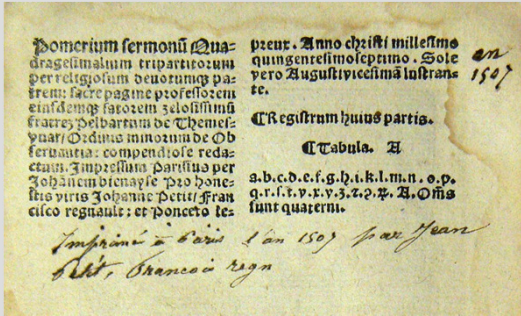 Pomerium sermonū Qua-
dragesimalium tripartitorum
per religiosum deuotumqꝫ pa-
trem: sacre pagine professorem
eiusdemqꝫ satorem zelosissimū
fratrez Pelbartum de Themes-
vuar/ Ordinis minorum de Ob
seruantia: compendiose reda-
ctum. Impressum Parisius per
Johānem bienayse Pro hone-
stis viris Johanne Petit/ Fran
cisco regnault: et Ponceto le-
preux. Anno christi millesimo
quingentesimoseptimo. Sole
vero Augusti vicesimā lustran-
te.
¶ Registrum huius partis.
¶ Tabula. A
a.b.c.d.e.f.g.h.i.k.l.m.n.o.p.
q.r.s.t.v.x.y.z.ꝫ.ꝯ.ꝝ. A. Om̄s
sunt quaterni.
an
1507
Imprimé à Paris l'an 1507 par Jean
Petit, Francois regn